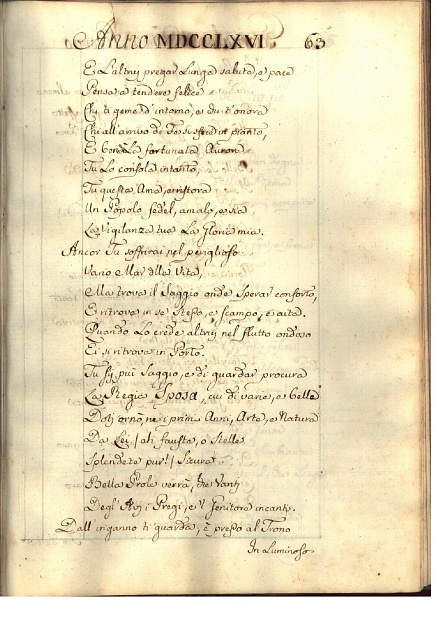 Anno MDCCLXVI. 63
E L'altrui pregar Lunga salute, e pace
Pensa a rendere felice
Chi ti geme d'intorno, e chi t'onora
Chi all'arrivo di
E ben La fortunata Aurora
Tu Lo consola intanto,
Tu questa Ama, e ristora
Un Popolo fedel, amalo, e sia
La Vigilanza tua La Gloria mia.
Ancor Tu soffrirai nel periglioso
Vario Mar della Vita,
Ma trova il Saggio onde Sperar conforto,
E ritrova in se Stesso, e scampo, e aita.
Quando Lo crede altrui nel flutto ondoso
Ei si ritrova in Porto.
Tu sij più Saggio, e di guardar procura
La Regia Sposa, cui di varie, e belle
Doti ornò, ne i primi Anni, Arte, e Natura
Da Lei / ah fauste, o Stelle
Splendete pur! / Sicura
Bella Prole verrà, che Vanti
Degl'Avi i Pregi, e'l Genitore incanti.
Dall'inganno ti guarda, è presso al Trono
In Luminoso